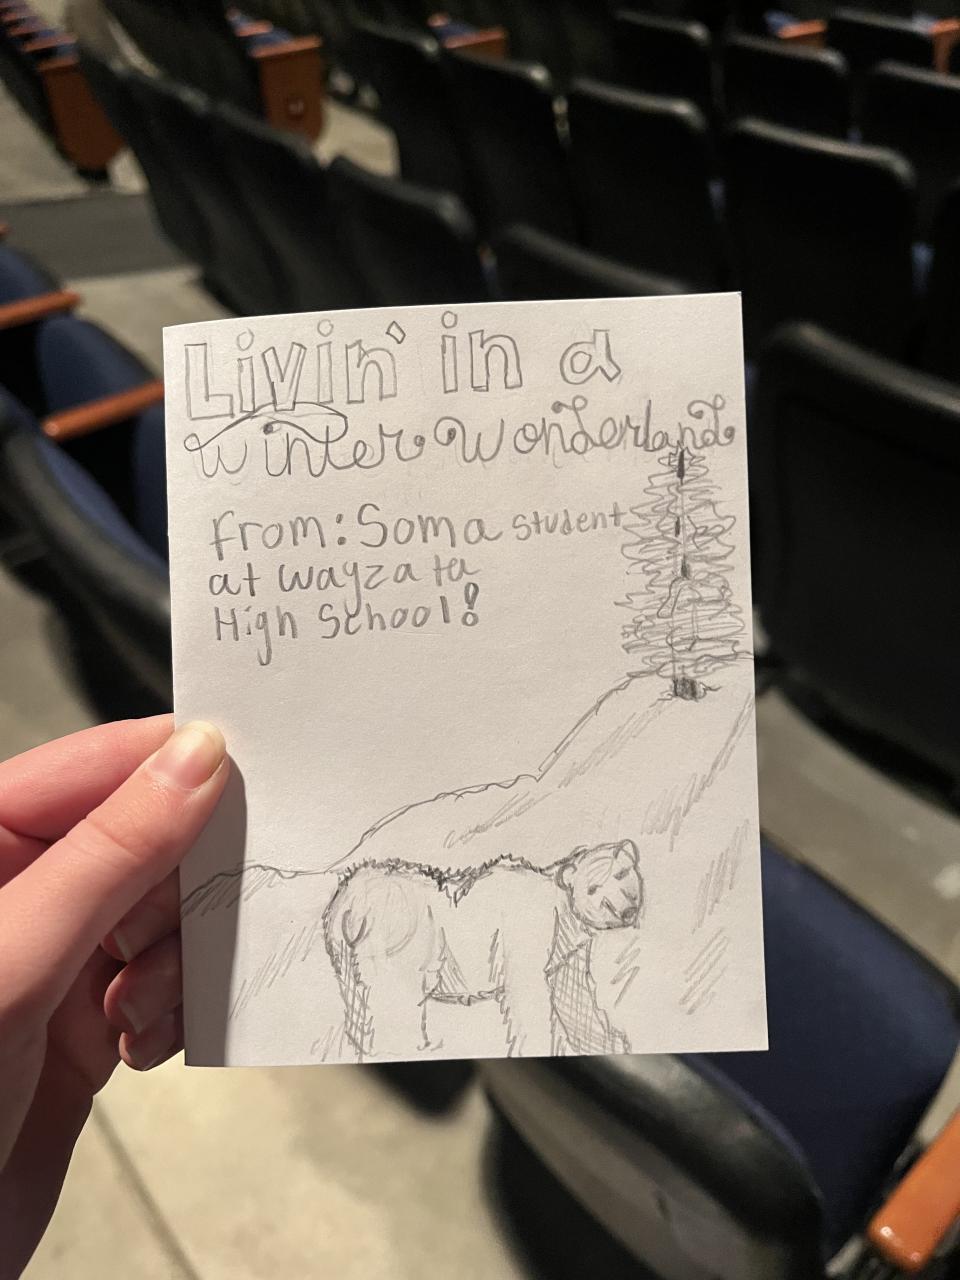 Livin' in a
Winter Wonderland
From: Soma student
at Wayzata
High School!